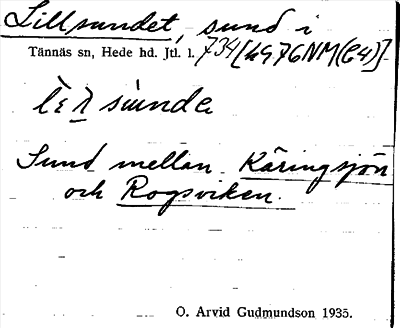 Lillsundet, sund i
Tännäs sn, Hede hd. Jtl. l. 734 [4976NM(C4)]
súnde
Sund mellan Käringsjön
och Rogsviken.
O. Arvid Gudmundson 1935.